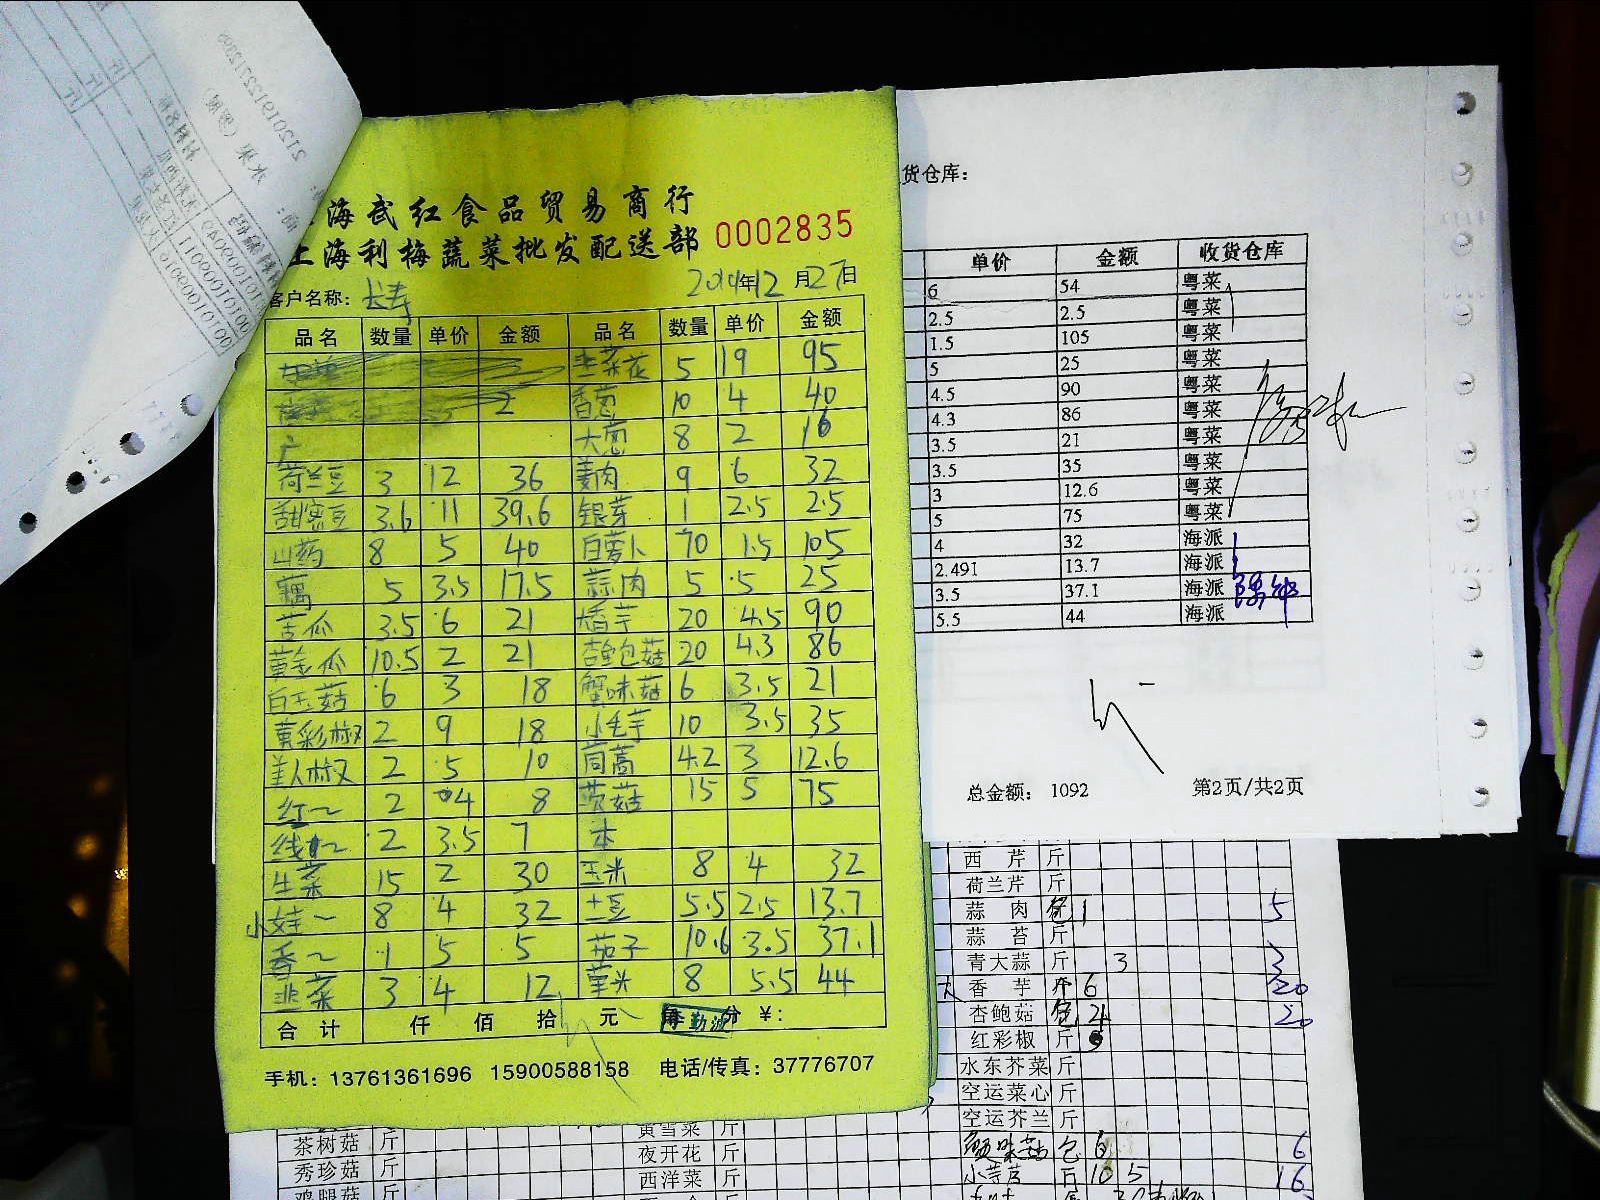 海武红食品贸易商行
上海利梅蔬菜批发配送部 0002835
客户名称: 长寿 2019年12月27日
品名 数量 单价 金额 品名 数量 单价 金额
韭菜花 5 19 95
香葱 10 4 40
大葱 8 2 16
荷兰豆 3 12 36 姜肉 9 6 32
甜蜜豆 3.6 11 39.6 银芽 1 2.5 2.5
山药 8 5 40 白萝卜 70 1.5 105
藕 5 3.5 17.5 蒜肉 5 5 25
苦瓜 3.5 6 21 香芋 20 4.5 90
黄金瓜 10.5 2 21 杏鲍菇 20 4.3 86
白玉菇 6 3 18 蟹味菇 6 3.5 21
黄彩椒 2 9 18 小毛芋 10 3.5 35
美人椒 2 5 10 茼蒿 4.2 3 12.6
红~ 2 4 8 茨菇 15 5 75
线~ 2 3.5 7 本
生菜 15 2 30 玉米 8 4 32
小娃~ 8 4 32 土豆 5.5 2.5 13.7
香~ 1 5 5 茄子 10.6 3.5 37.1
韭菜 3 4 12 草头 8 5.5 44
合计 仟 佰 拾 元 角 分 ¥:
手机: 13761361696 15900588158 电话/传真: 37776707
货仓库:
单价 金额 收货仓库
6 54 粤菜
2.5 2.5 粤菜
1.5 105 粤菜
5 25 粤菜
4.5 90 粤菜
4.3 86 粤菜
3.5 21 粤菜
3.5 35 粤菜
3 12.6 粤菜
5 75 粤菜
4 32 海派
2.491 13.7 海派
3.5 37.1 海派
5.5 44 海派
总金额: 1092 第2页/共2页
西芹 斤
荷兰芹 斤
蒜肉 包 1 5
蒜苔 斤
青大蒜 斤 3 3
香芋 斤 6 20
杏鲍菇 包 4 20
红彩椒 斤
水东芥菜 斤
空运菜心 斤
空运芥兰 斤
茶树菇 斤 黄雪菜 斤 蟹味菇 包 6 6
秀珍菇 斤 夜开花 斤 斤 10 5 16
鸡腿菇 斤 西洋菜 斤